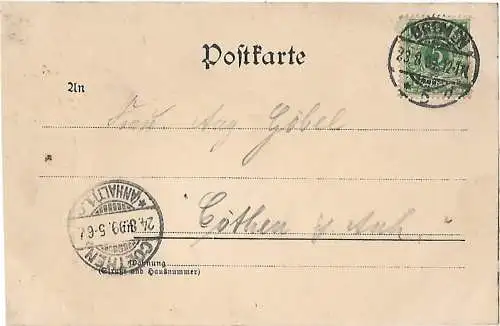 Postkarte
BREMEN
23.8.
5
An
Frau Aug Göbel
Cöthen i/Anh.
COETHEN (ANHALT) 1
24.8.99. 5-6
Wohnung
(Straße und Hausnummer)